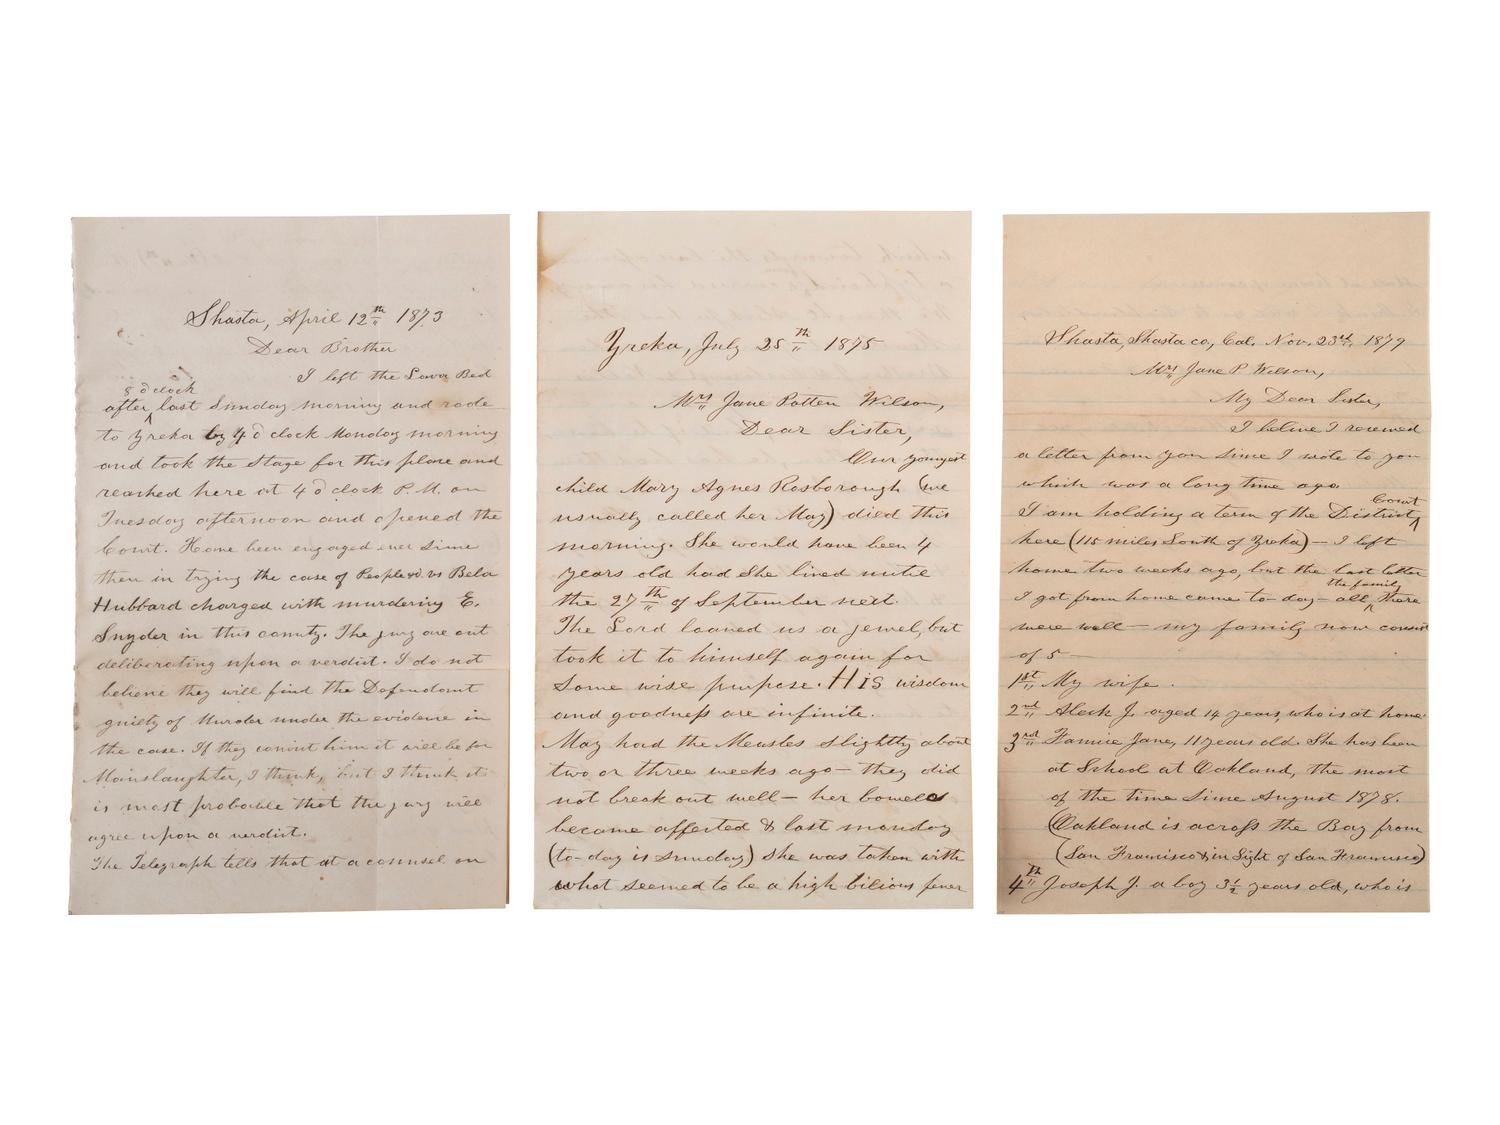 Shasta, April 12th 1873
Dear Brother
I left the Lava Bed
8 o'clock
after last Sunday morning and rode
to Yreka by 4 o'clock Monday morning
and took the Stage for this place and
reached here at 4 o'clock P.M. on
Tuesday afternoon and opened the
Court. Have been engaged ever since
then in trying the case of People &c. vs Bela
Hubbard charged with murdering E.
Snyder in this county. The jury are out
deliberating upon a verdict. I do not
believe they will find the Defendant
guilty of Murder under the evidence in
the case. If they convict him it will be for
Manslaughter, I think, but I think it
is most probable that the jury will
agree upon a verdict.
The Telegraph tells that at a counsel on
Yreka, July 25th 1875
Mrs Jane Patten Wilson,
Dear Sister,
Our youngest
child Mary Agnes Rosborough (we
usually called her May) died this
morning. She would have been 4
years old had she lived until
the 27th of September next.
The Lord loaned us a jewel, but
took it to himself again for
some wise purpose. His wisdom
and goodness are infinite.
May had the Measles slightly about
two or three weeks ago — they did
not break out well — her bowels
became affected & last monday
(to-day is sunday) she was taken with
what seemed to be a high bilious fever
Shasta, Shasta co, Cal. Nov. 23rd, 1879
Mrs Jane P Wilson,
My Dear Sister,
I belive I received
a letter from you since I wrote to you
which was a long time ago.
I am holding a term of the District Court
here (115 miles South of Yreka) — I left
home two weeks ago, but the last letter
I got from home came to-day — all the family there
were well — my family now consist
of 5 —
1st My wife.
2nd Aleck J. aged 14 years, who is at home.
3rd Jane, 11 years old. She has been
at School at Oakland, the most
of the time since August 1878.
(Oakland is across the Bay from
(San Francisco & in Sight of San Francisco)
4th Joseph J. a boy 3½ years old, who is